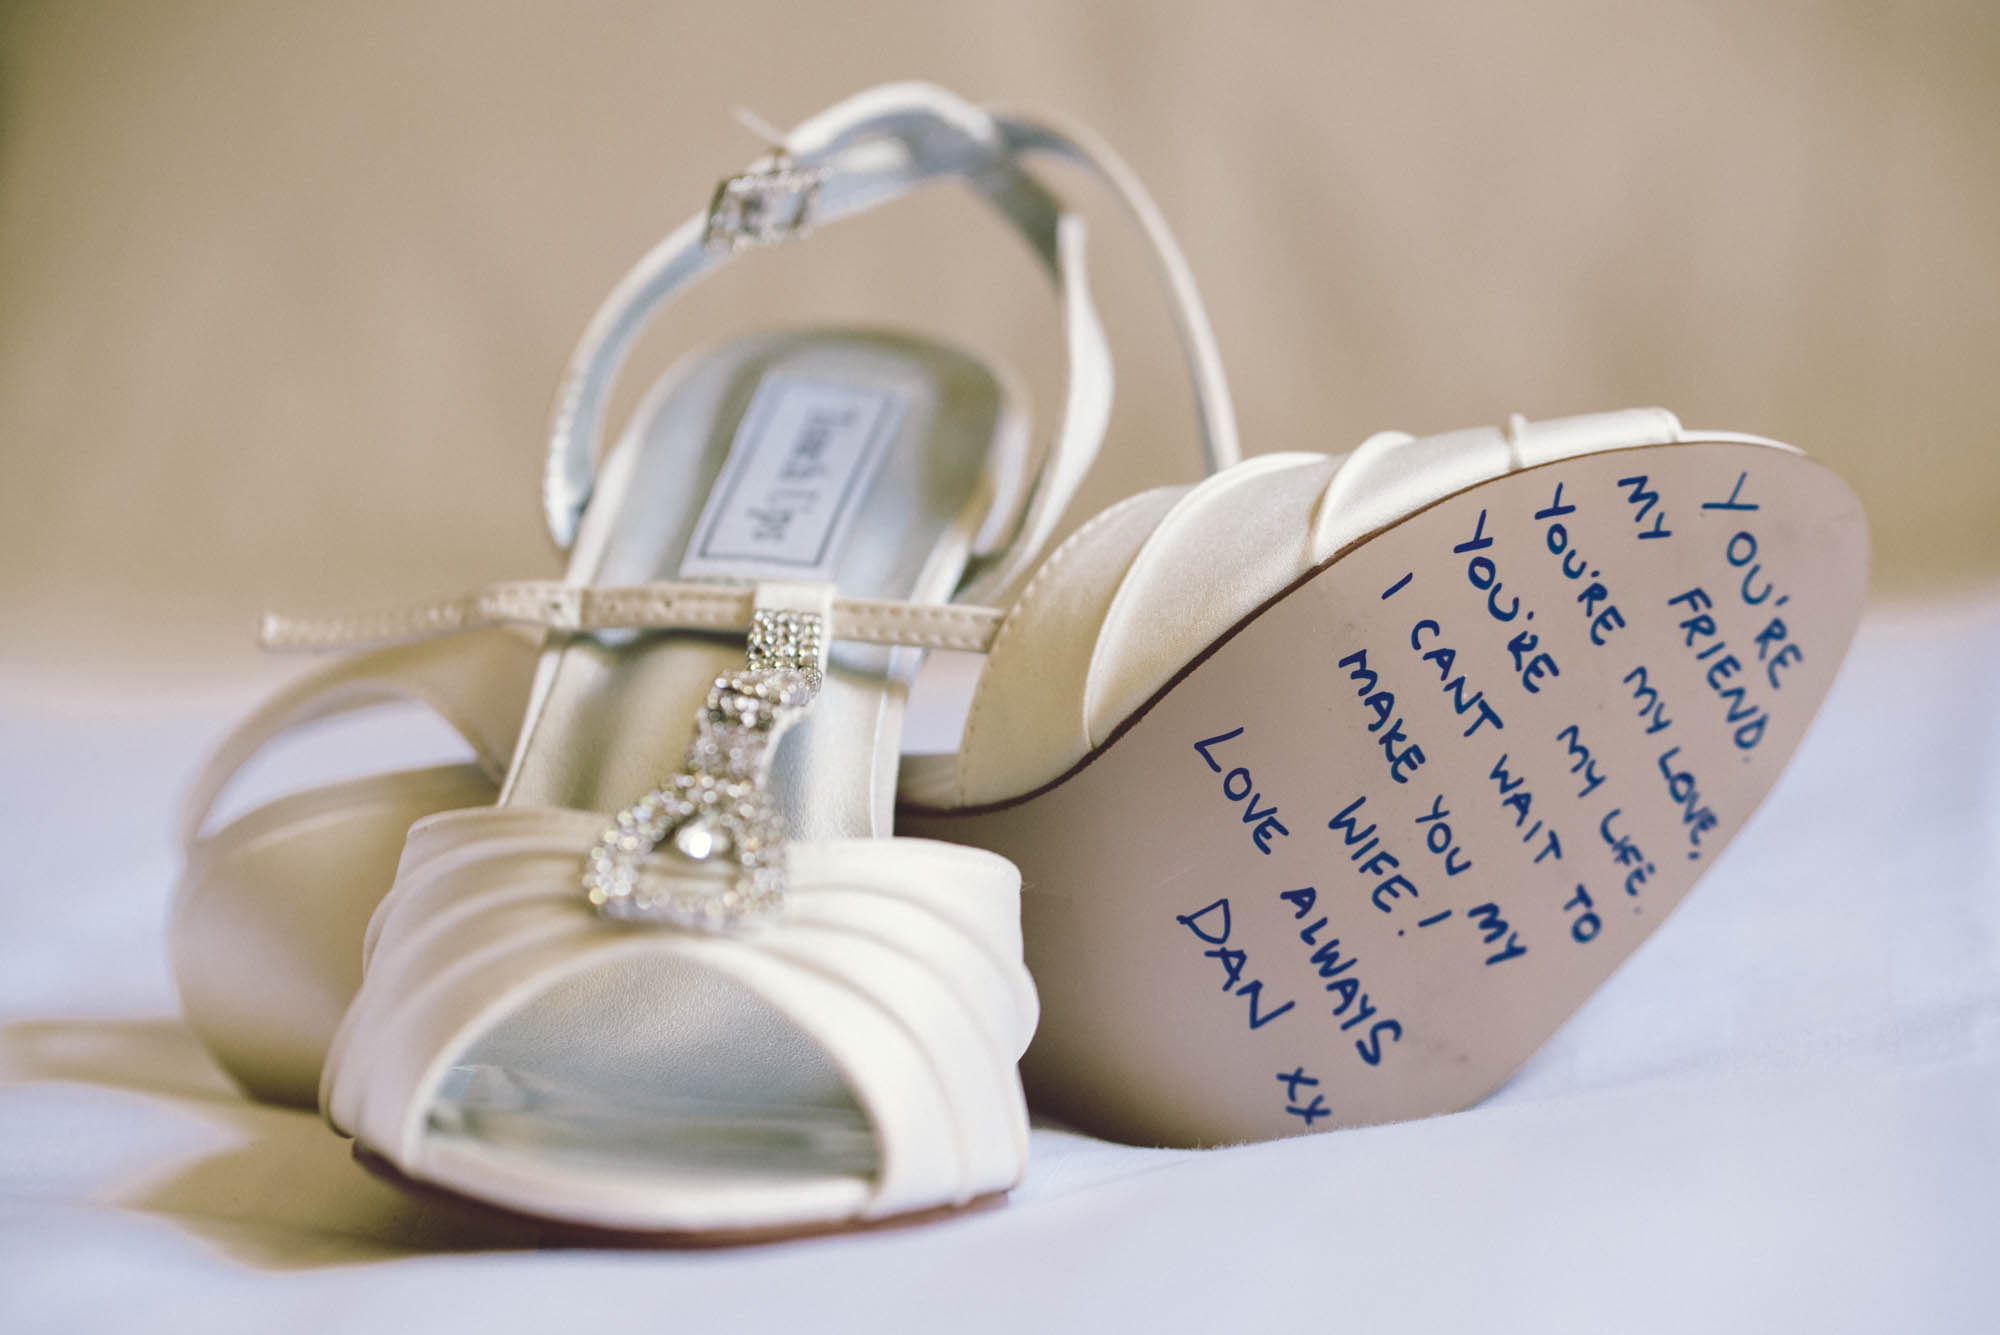 YOU'RE
MY FRIEND.
YOU'RE MY LOVE,
YOU'RE MY LIFE.
I CANT WAIT TO
MAKE YOU MY
WIFE!
LOVE ALWAYS
DAN XX